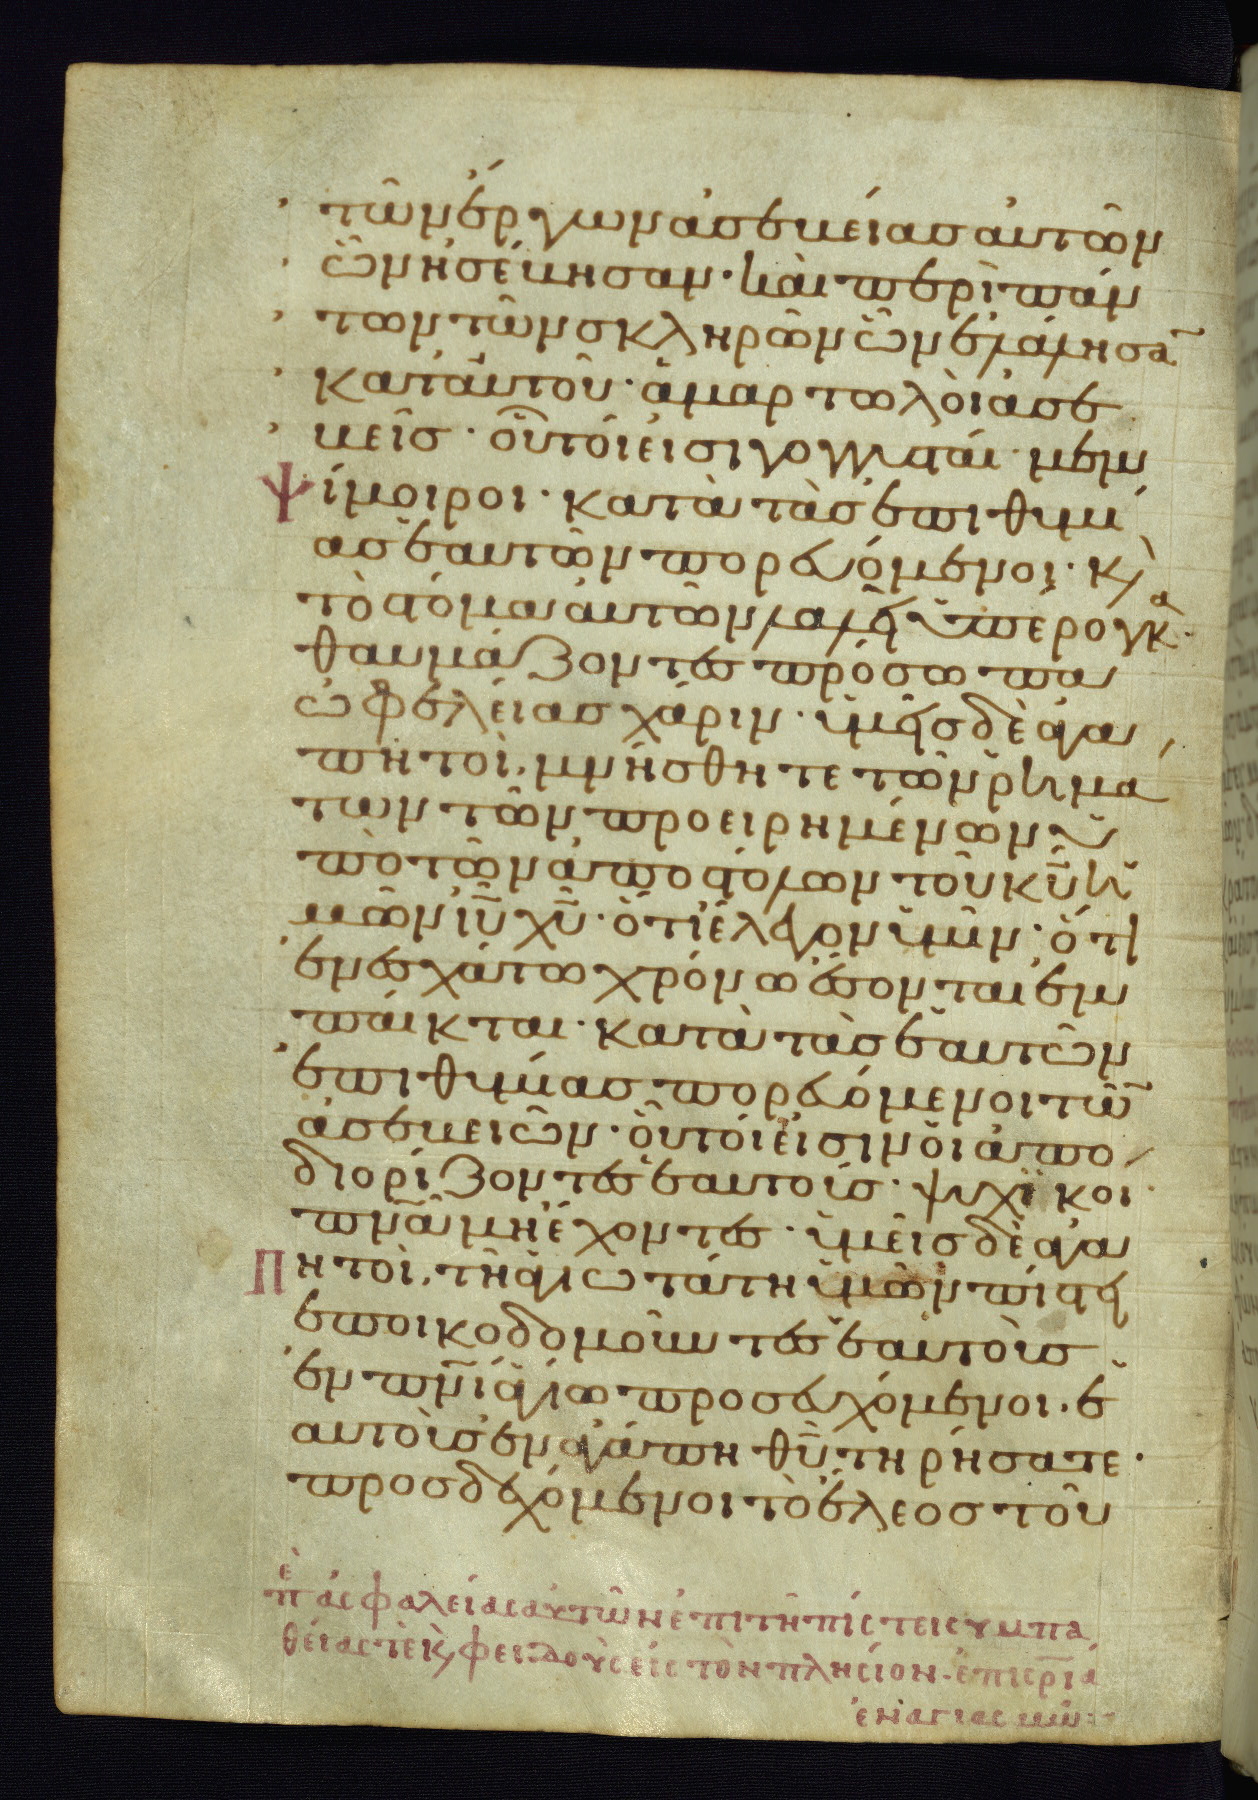 τῶν ἔργων ἀσεβείασ αὐτῶν
ὧν ἠσέβησαν· καὶ περὶ πάν
των τῶν σκληρῶν ὧν ἐλάλησα̅
κατ' αὐτοῦ· ἁμαρτωλοὶ ἀσε
βεῖσ· οὗτοί εἰσι γογγυσταί· μεμ
ψίμοιροι· κατὰ τὰσ ἐπιθυμί
ασ ἑαυτῶν πορευόμενοι· κ(αὶ)
τὸ στόμα αὐτῶν λαλεῖ ὑπέρογκα·
θαυμάζοντεσ πρόσωπα
ὠφελείασ χάριν· ὑμεῖσ δὲ ἀγα
πητοὶ, μνήσθητε τῶν ῥημά
των τῶν προειρημένων ὑ
πὸ τῶν ἀποστόλων τοῦ κ̅υ̅ ἡ
μῶν ι̅υ̅ χ̅υ̅· ὅτι ἔλεγον ὑμῖν· ὅτι
ἐν ἐσχάτω χρόνω ἔσονται ἐμ
παίκται· κατὰ τὰσ ἑαυτῶν
ἐπιθυμίασ πορευόμενοι τῶ̅
ἀσεβειῶν· οὗτοί εἰσιν οἱ ἀπο
διορίζοντεσ ἑαυτοίσ· ψυχϊκοι·
π̅ν̅α̅ μὴ ἔχοντεσ· ὑμεῖσ δὲ ἀγα
πητοὶ, τῆ ἁγιωτάτη ὑμῶν πίστει
ἐποικοδομοῦντεσ ἑαυτοὺσ
ἐν π̅ν̅ι̅ ἁγίω προσευχόμενοι· ἑ
αυτοὺσ ἐν ἀγάπη θ̅υ̅ τηρήσατε·
προσδεχόμενοι τὸ ἔλεος τοῦ
ε̅ π(ερὶ) ἀσφαλείασ αὐτῶν ἐπὶ τῆ πίστει συμπα
θείασ τὲ κ(αὶ) φειδοῦσ εἰσ τὸν πλησίον· ἐπὶ σ̅ρ̅ι̅ά